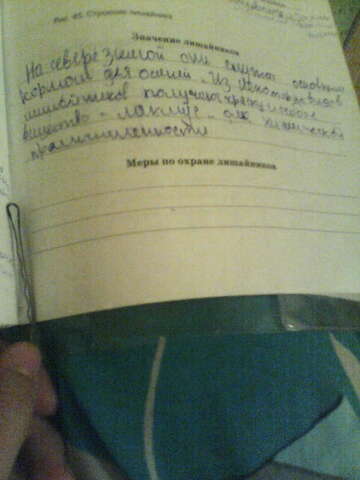 Рис. 65. Строение лишайника
Значение лишайников
На севере зимой они служат основным
кормом для оленей. Из некоторых видов
лишайников получают краску и особое
вещество - лакмус - для химической
промышленности
Меры по охране лишайников